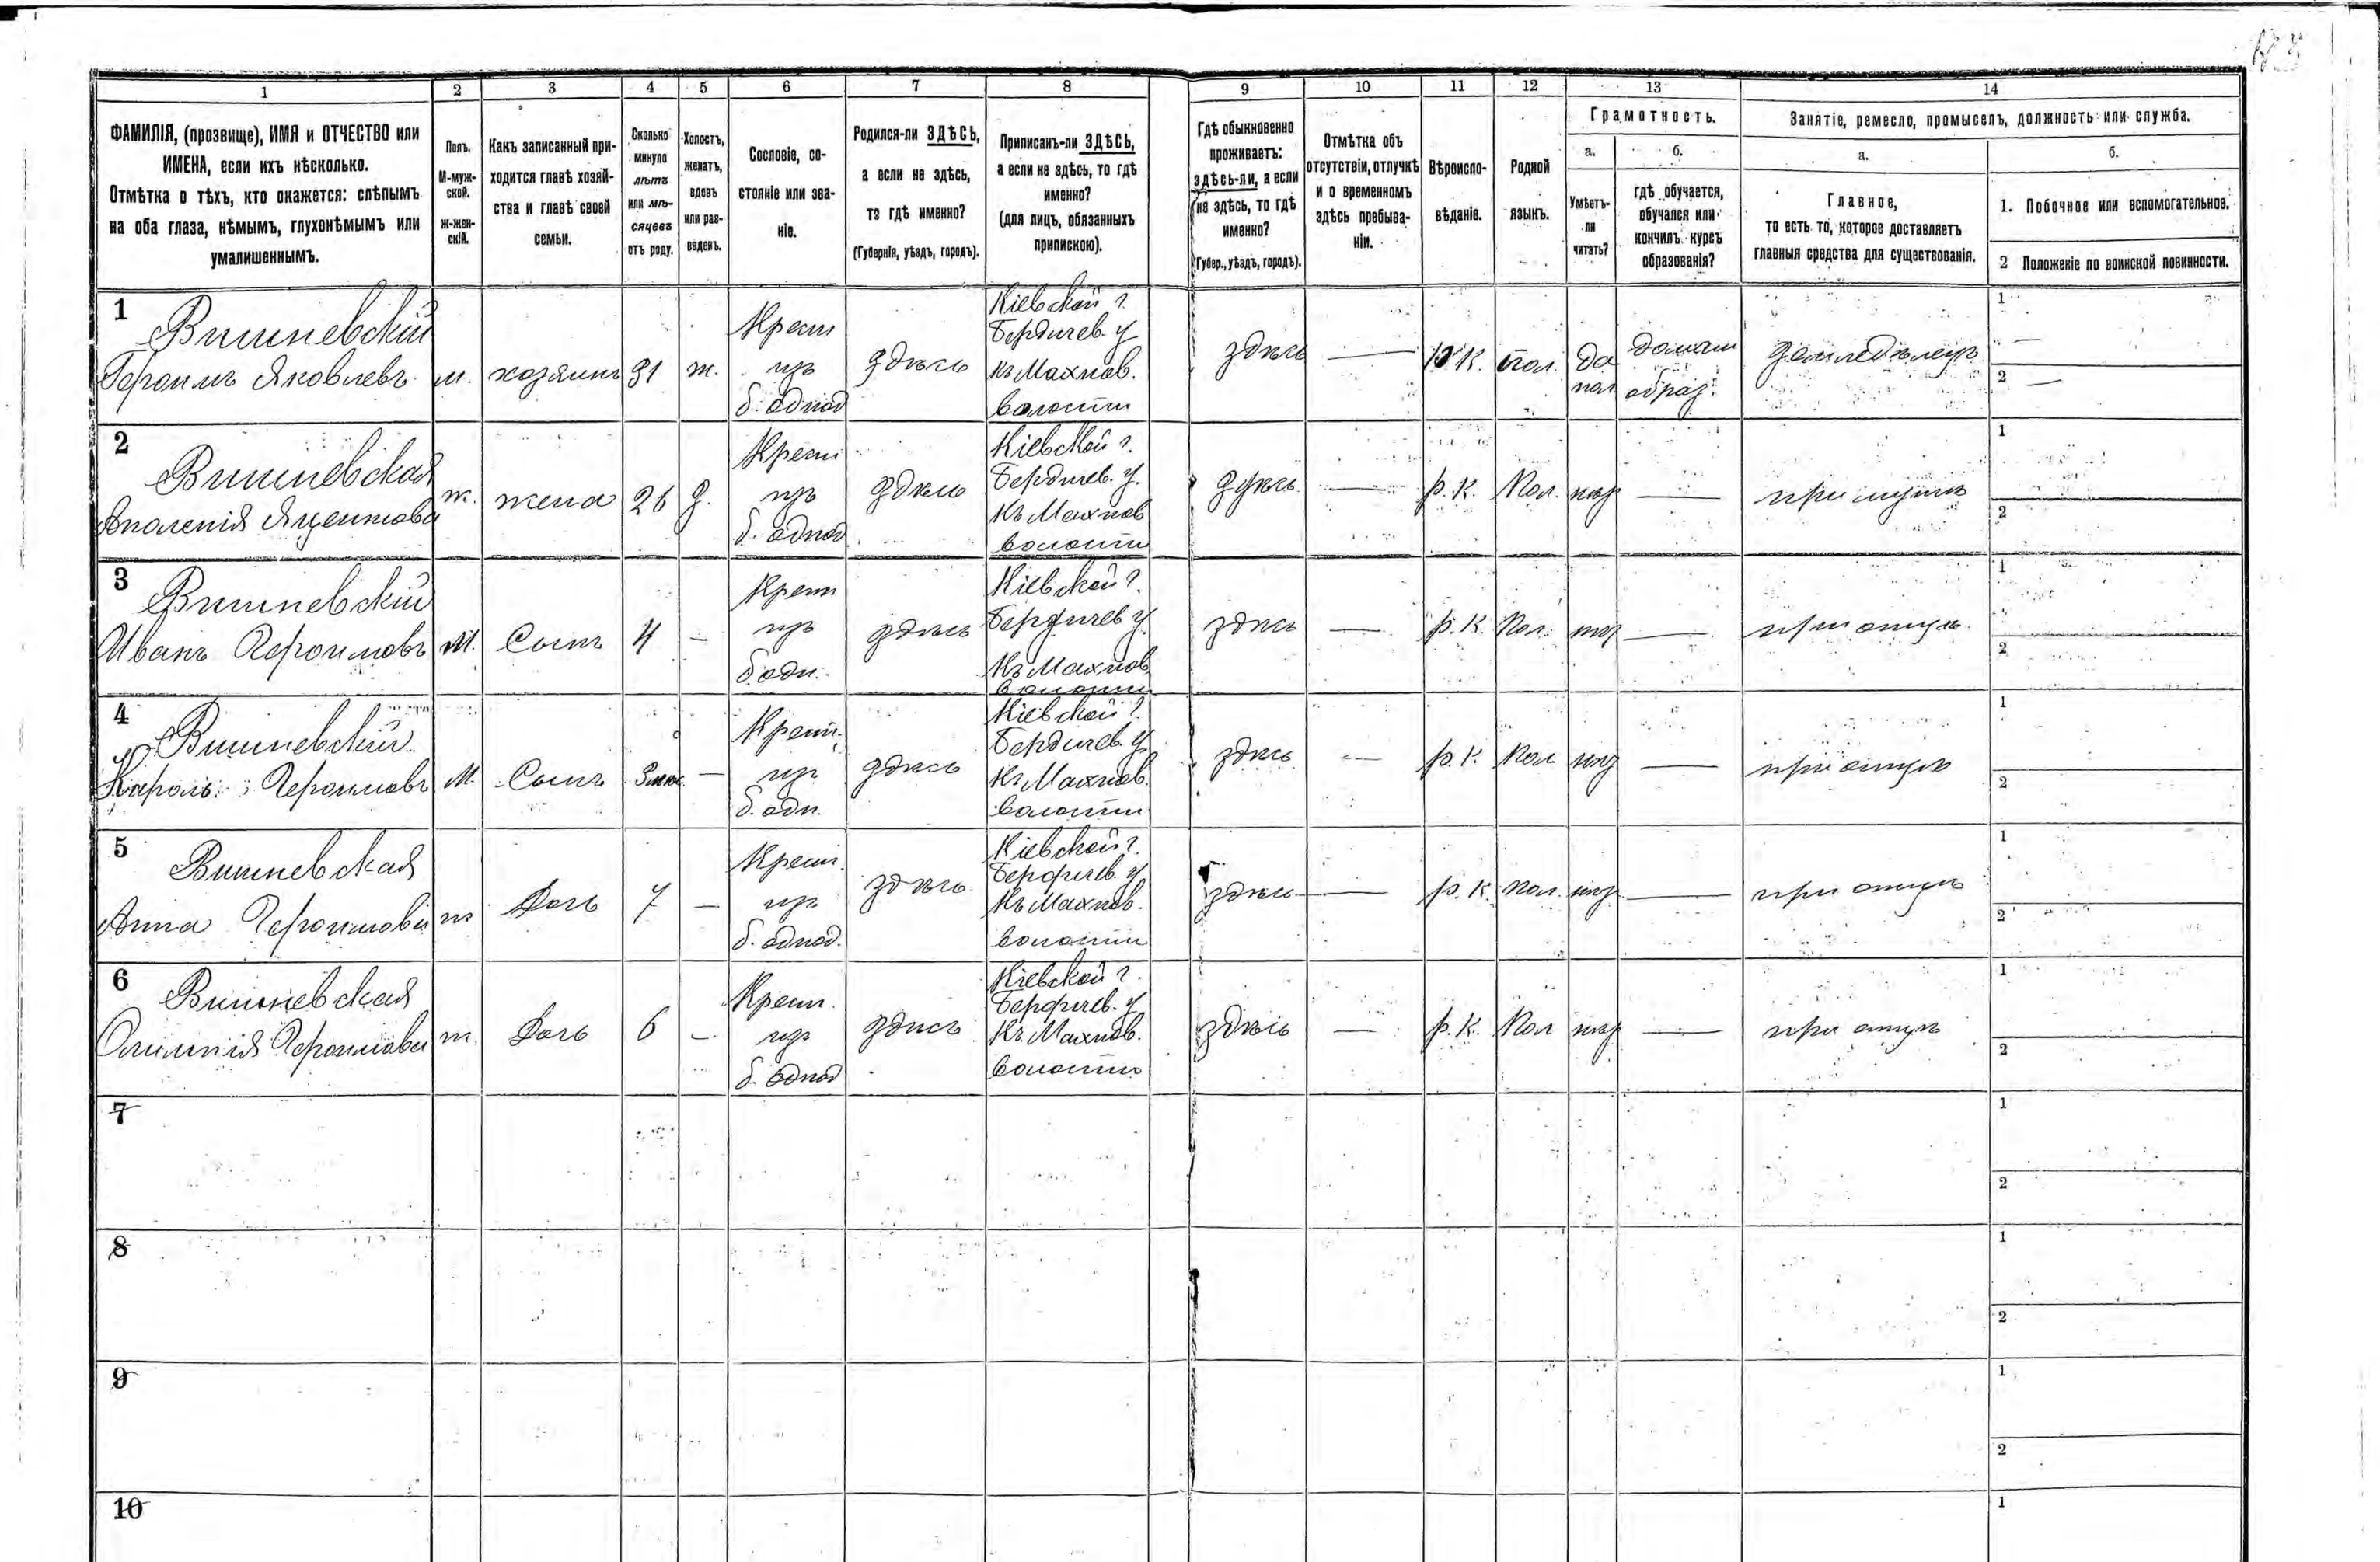 1 2 3 4 5 6 7 8 9 10 11 12 13 14
ФАМИЛІЯ, (прозвище), ИМЯ и ОТЧЕСТВО или
ИМЕНА, если ихъ нѣсколько.
Отмѣтка о тѣхъ, кто окажется: слѣпымъ
на оба глаза, нѣмымъ, глухонѣмымъ или
умалишеннымъ.
Полъ.
М-муж-
ской.
Ж-жен-
скій.
Какъ записанный при-
ходится главѣ хозяй-
ства и главѣ своей
семьи.
Сколько
минуло
лѣтъ
или мѣ-
сяцевъ
отъ роду.
Холостъ,
женатъ,
вдовъ
или раз-
веденъ.
Сословіе, со-
стояніе или зва-
ніе.
Родился-ли ЗДѢСЬ,
а если не здѣсь,
то гдѣ именно?
(Губернія, уѣздъ, городъ).
Приписанъ-ли ЗДѢСЬ,
а если не здѣсь, то гдѣ
именно?
(для лицъ, обязанныхъ
припискою).
Гдѣ обыкновенно
проживаетъ:
здѣсь-ли, а если
не здѣсь, то гдѣ
именно?
(Губер., уѣздъ, городъ).
Отмѣтка объ
отсутствіи, отлучкѣ
и о временномъ
здѣсь пребыва-
ніи.
Вѣроиспо-
вѣданіе.
Родной
языкъ.
Грамотность.
а.
Умѣетъ-
ли
читать?
б.
гдѣ обучается,
обучался или
кончилъ курсъ
образованія?
Занятіе, ремесло, промыселъ, должность или служба.
а.
Главное,
то есть то, которое доставляетъ
главныя средства для существованія.
б.
1. Побочное или вспомогательное.
2 Положеніе по воинской повинности.
1
Вишневскій
Героимъ Яковлевъ
м.
хозяинъ
31
ж.
Крест
изъ
б. однод
здѣсь
Кіевской г.
Бердичев. у
къ Махнов.
волости
здѣсь
—
р. К.
пол.
да
пол
домаш
образ.
земледѣлецъ
1
—
2
—
2
Вишневская
Аполенія Яцентова
ж.
жена
26
з.
Крест
изъ
б. однод
здѣсь
Кіевской г.
Бердичев. у.
Къ Махнов
волости
здѣсь
—
р. К.
Пол.
нѣт
—
при мужѣ
1
2
3
Вишневскій
Иванъ Героимовъ
М.
Сынъ
4
—
Крест
изъ
б. одн.
здѣсь
Кіевской г.
Бердичев у.
Къ Махнов
волости
здѣсь
—
р. К.
Пол.
нѣт
—
при отцѣ
1
2
4
Вишневскій
Кароль Героимовъ
М.
Сынъ
—
Крест.
изъ
б. одн.
здѣсь
Кіевской г.
Бердичев. у.
Къ Махнов.
волости
здѣсь
—
р. К.
Пол
нѣт
—
при отцѣ
1
2
5
Вишневская
Анна Героимова
ж
Дочь
7
—
Крест.
изъ
б. однод.
здѣсь
Кіевской г.
Бердичев. у
Къ Махнов.
волости
здѣсь
—
р. К.
пол.
нѣт
—
при отцѣ
1
2
6
Вишневская
Героимова
ж.
Дочь
6
—
Крест.
изъ
б. однод
здѣсь
Кіевской г.
Бердичев. у
Къ Махнов.
волости
здѣсь
—
р. К.
Пол
нѣт
—
при отцѣ
1
2
7
1
2
8
1
2
9
1
2
10
1